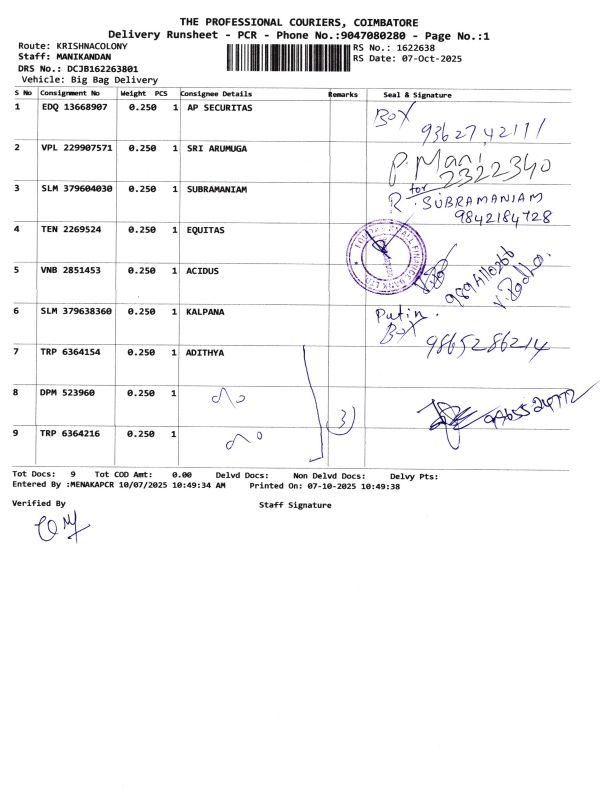 THE PROFESSIONAL COURIERS, COIMBATORE
Delivery Runsheet - PCR - Phone No.:9047080280 - Page No.:1
Route: KRISHNACOLONY
Staff: MANIKANDAN
DRS No.: DCJB162263801
Vehicle: Big Bag Delivery
RS No.: 1622638
RS Date: 07-Oct-2025
S No Consignment No Weight PCS Consignee Details Remarks Seal & Signature
1 EDQ 13668907 0.250 1 AP SECURITAS Box
9362742111
2 VPL 229907571 0.250 1 SRI ARUMUGA P. Mani
2322340
3 SLM 379604030 0.250 1 SUBRAMANIAM for
R. SUBRAMANIAM
9842184728
4 TEN 2269524 0.250 1 EQUITAS
5 VNB 2851453 0.250 1 ACIDUS
6 SLM 379638360 0.250 1 KALPANA Putin.
Box
9865286214
7 TRP 6364154 0.250 1 ADITHYA
8 DPM 523960 0.250 1
3)
9 TRP 6364216 0.250 1
Tot Docs: 9 Tot COD Amt: 0.00 Delvd Docs: Non Delvd Docs: Delvy Pts:
Entered By :MENAKAPCR 10/07/2025 10:49:34 AM Printed On: 07-10-2025 10:49:38
Verified By Staff Signature